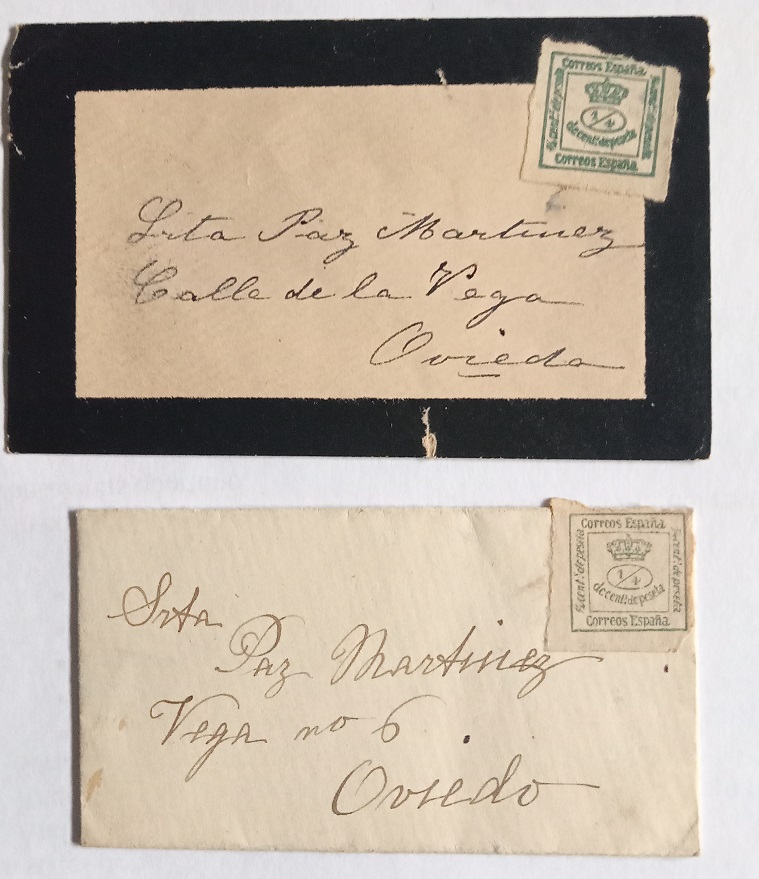 Correos España
¼ cent? de peseta
1/4
de cent? de peseta
¼ cent? de peseta
Correos España
Srta Paz Martinez
Calle de la Vega
Oviedo
Correos España
¼ cent? de peseta
1/4
de cent? de peseta
¼ cent? de peseta
Correos España
Srta
Paz Martinez
Vega no 6
Oviedo